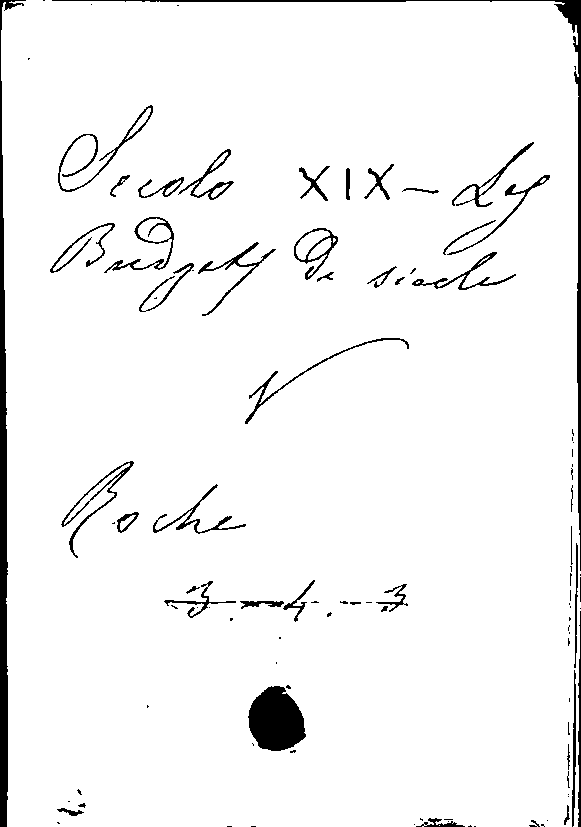 Seculo XIX - Les
Budgets du siecle
V
Roche
3.-4.-3